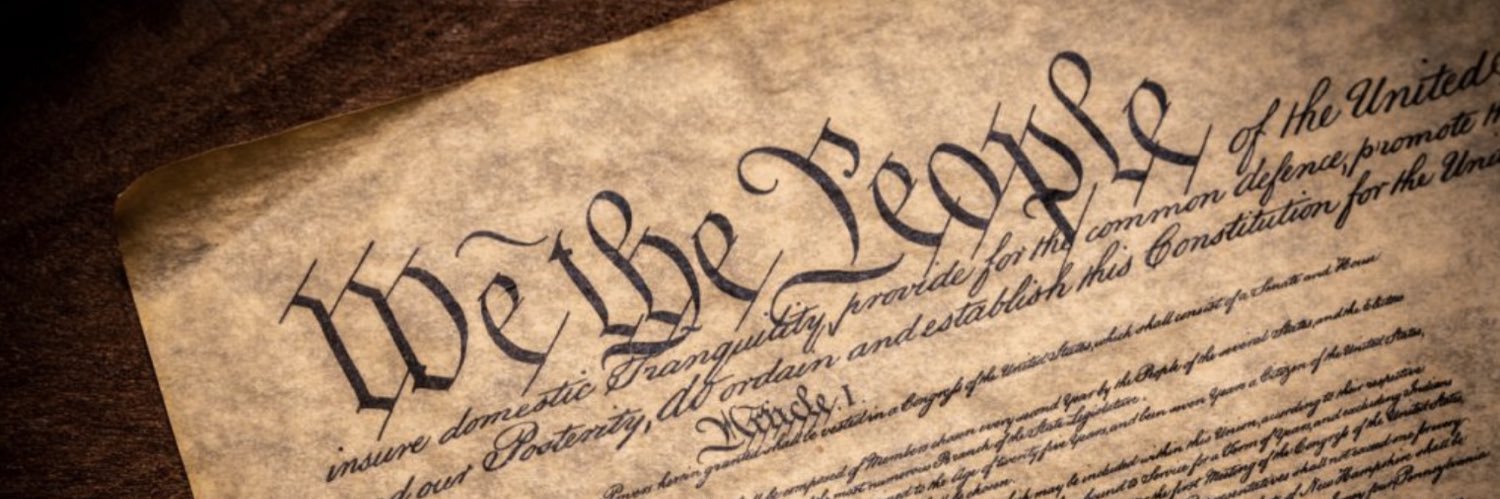 We the People of the United
insure domestic Tranquility, provide for the common defence, promote
our Posterity, do ordain and establish this Constitution for the
Article. I.
herein granted shall be vested in a Congress of the United States, which shall consist of a Senate and House
composed of Members chosen every second Year by the People of the several States, and the Electors
most numerous Branch of the State Legislature.
to the Age of twenty five Years, and been seven Years a Citizen of the United States,
chosen.
may be included within this Union, according to their respective
bound to Service for a Term of Years, and excluding Indians
the first Meeting of the Congress of the United States,
shall not exceed one for every
of New Hampshire shall be
Pennsylvania